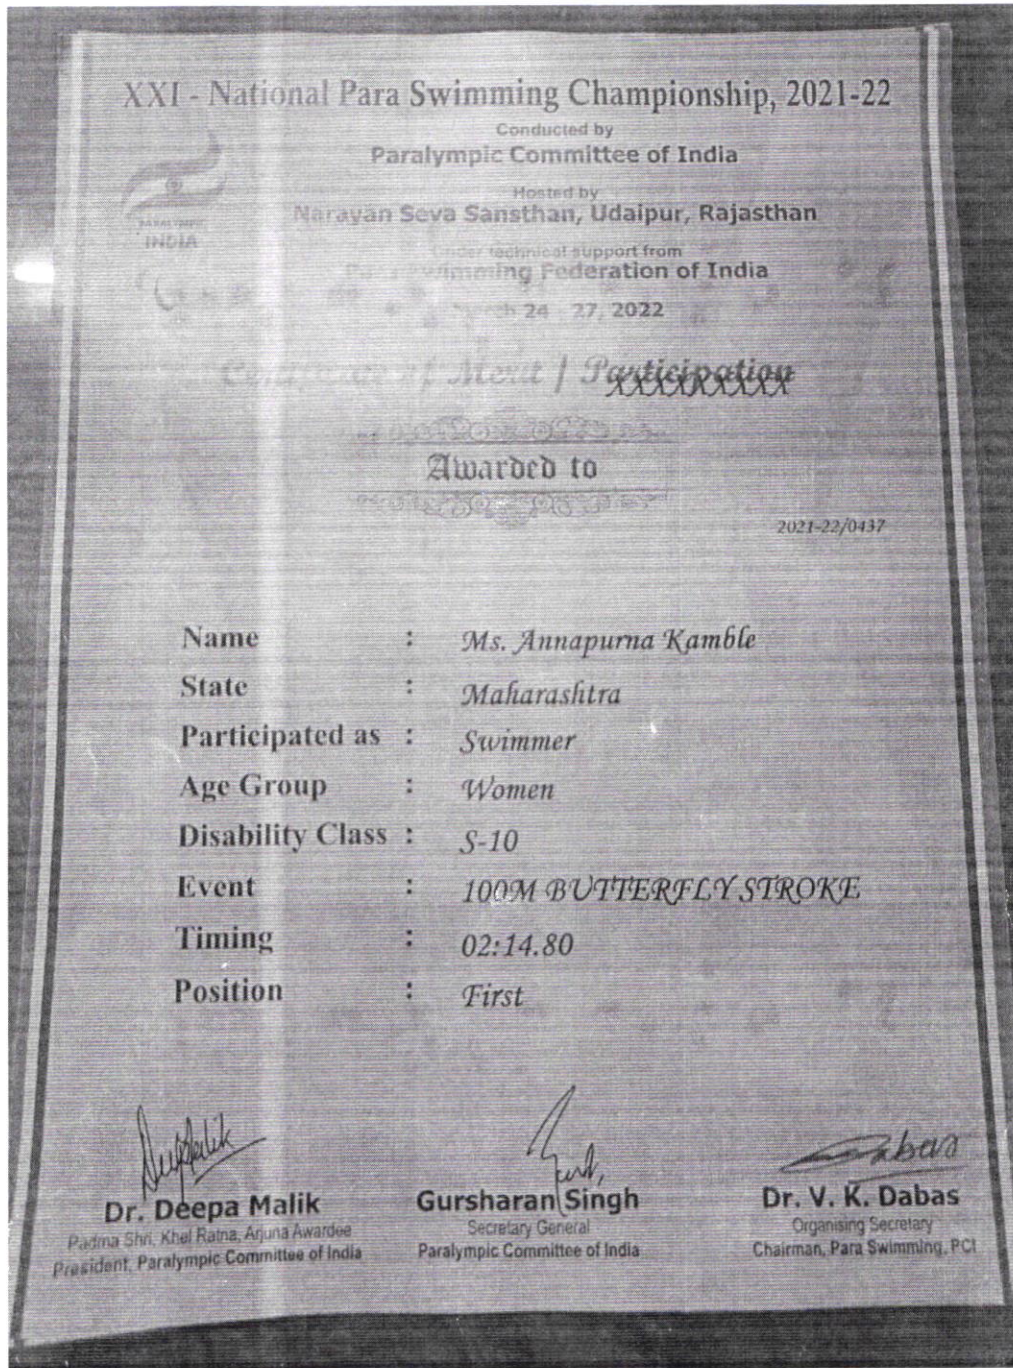 XXI - National Para Swimming Championship, 2021-22
Conducted by
Paralympic Committee of India
Hosted by
Narayan Seva Sansthan, Udaipur, Rajasthan
PARALYMPIC
INDIA
Under technical support from
Para Swimming Federation of India
March 24 - 27, 2022
Certificate of Merit / Participation
XXXXXXXXX
Awarded to
2021-22/0437
Name : Ms. Annapurna Kamble
State : Maharashtra
Participated as : Swimmer
Age Group : Women
Disability Class : S-10
Event : 100M BUTTERFLY STROKE
Timing : 02:14.80
Position : First
Dr. Deepa Malik
Padma Shri, Khel Ratna, Arjuna Awardee
President, Paralympic Committee of India
Gursharan Singh
Secretary General
Paralympic Committee of India
Dabas
Dr. V. K. Dabas
Organising Secretary
Chairman, Para Swimming, PCI